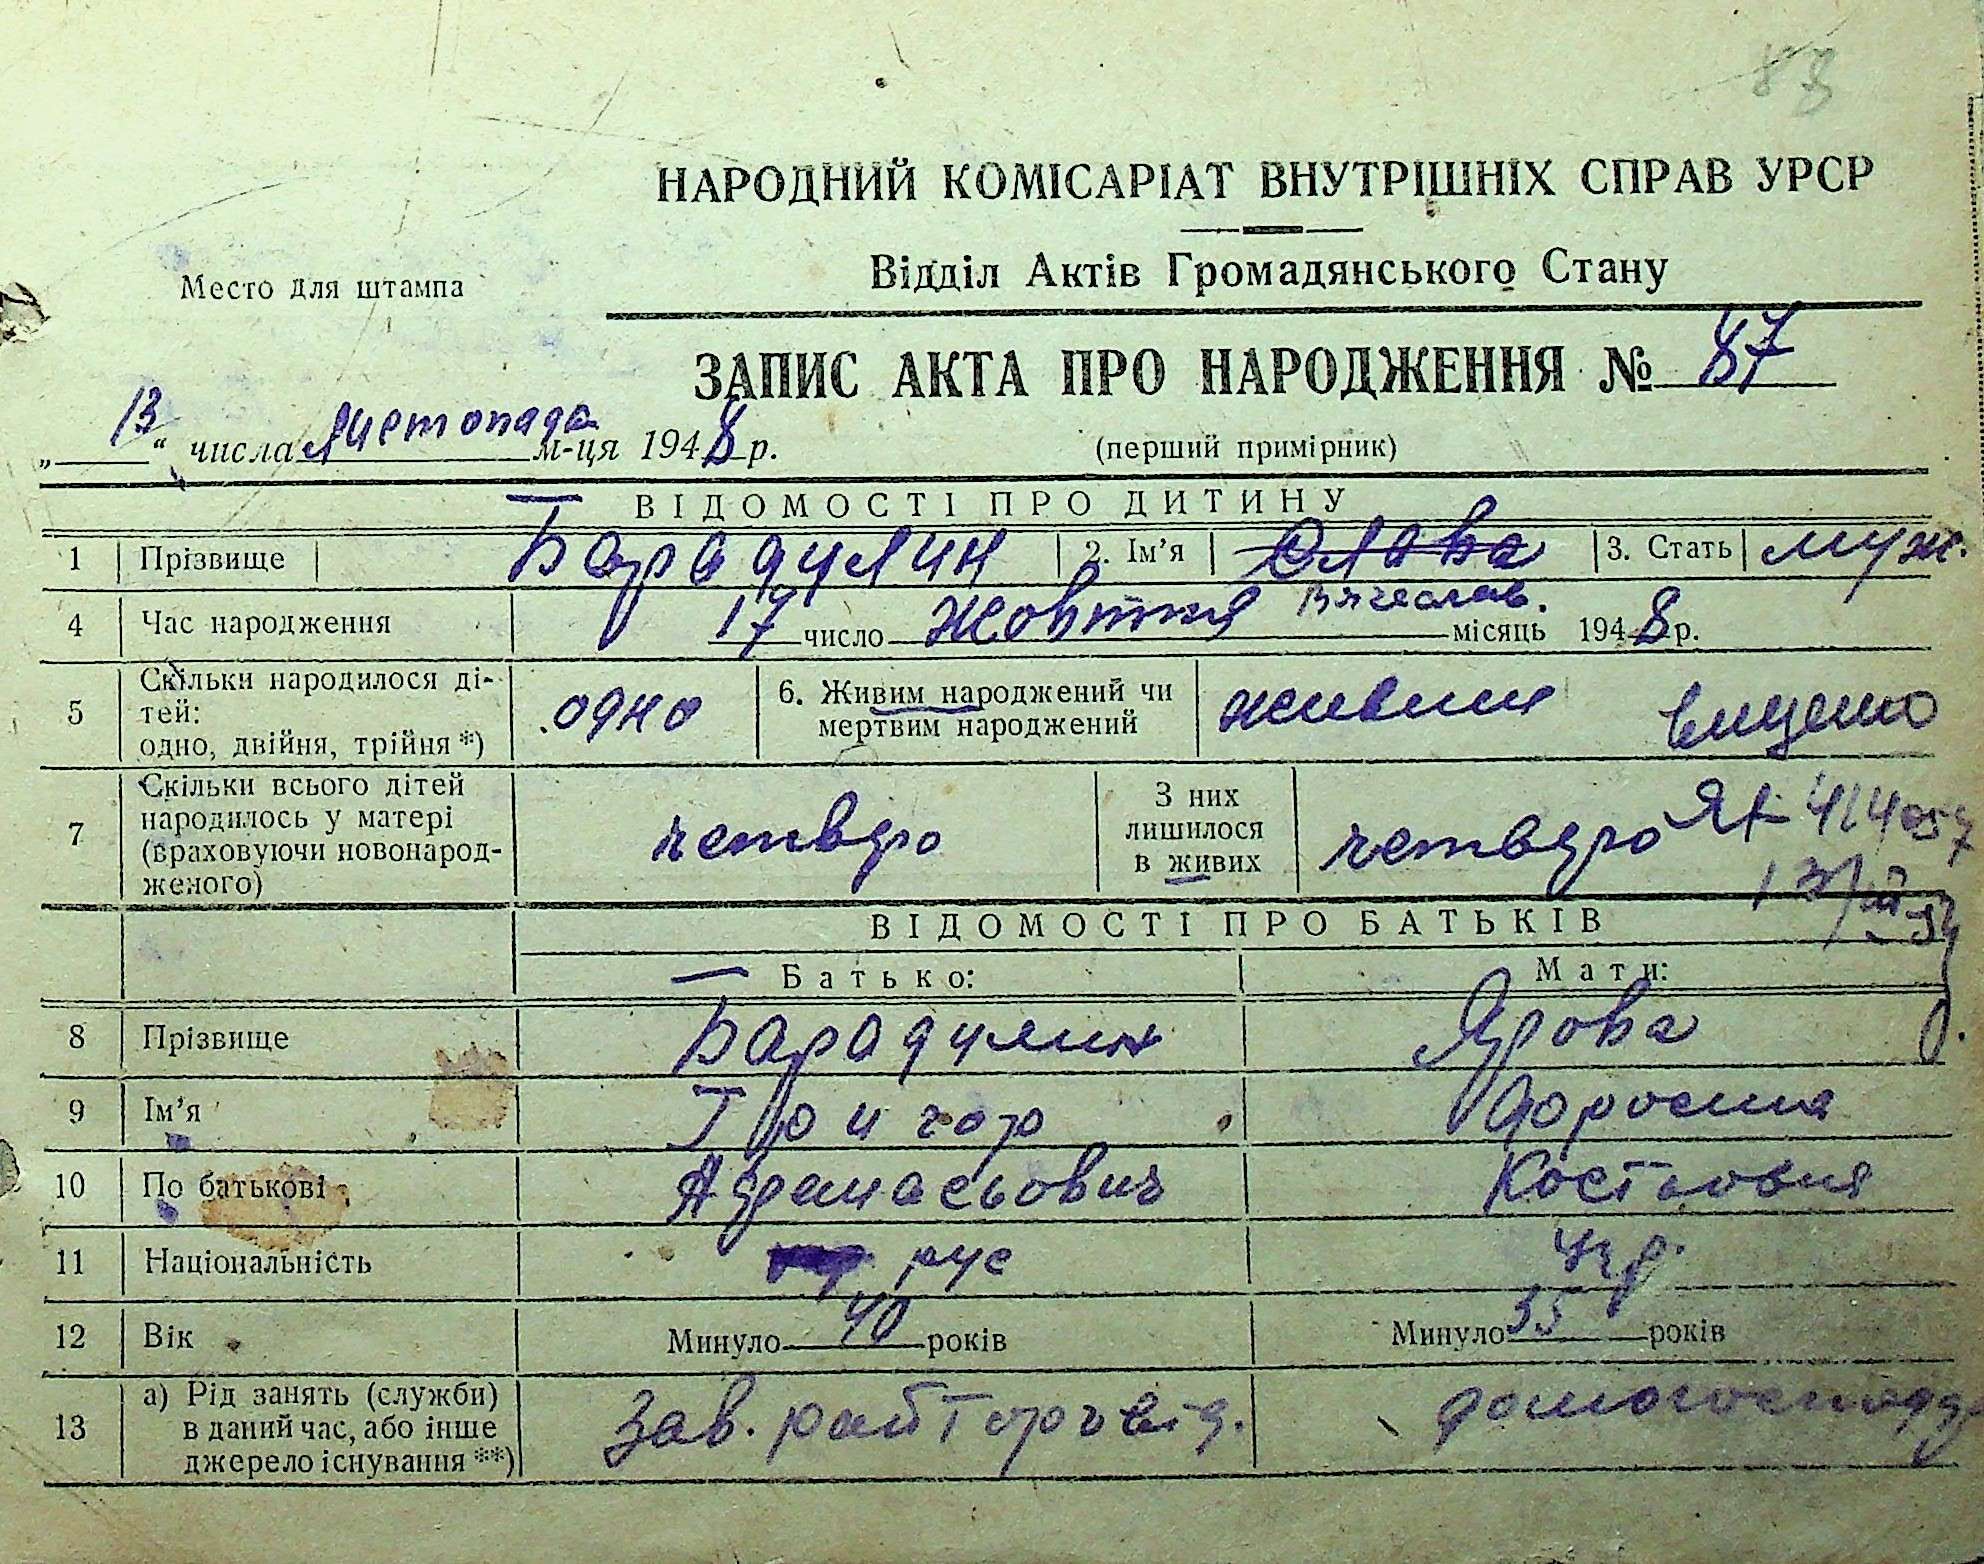 83
НАРОДНИЙ КОМІСАРІАТ ВНУТРІШНІХ СПРАВ УРСР
Відділ Актів Громадянського Стану
Место для штампа
ЗАПИС АКТА ПРО НАРОДЖЕННЯ № 87
„13“ числа Листопада м-ця 1948 р. (перший примірник)
ВІДОМОСТІ ПРО ДИТИНУ
1 Прізвище Барадулин 2. Ім’я Слава 3. Стать муж.
Вячеслав.
4 Час народження 17 число жовтня місяць 1948 р.
5 Скільки народилося ді-
тей:
одно, двійня, трійня *) одно 6. Живим народжений чи
мертвим народжений живим
7 Скільки всього дітей
народилось у матері
(враховуючи новонарод-
женого) четверо З них
лишилося
в живих четверо
ВІДОМОСТІ ПРО БАТЬКІВ
Батько: Мати:
8 Прізвище Барадулин Ярова
9 Ім’я Григор
10 По батькові Афанасьович Костьовна
11 Національність рус укр.
12 Вік Минуло 40 років Минуло 35 років
13 а) Рід занять (служби)
в даний час, або інше
джерело існування **) Зав. райторгвід.